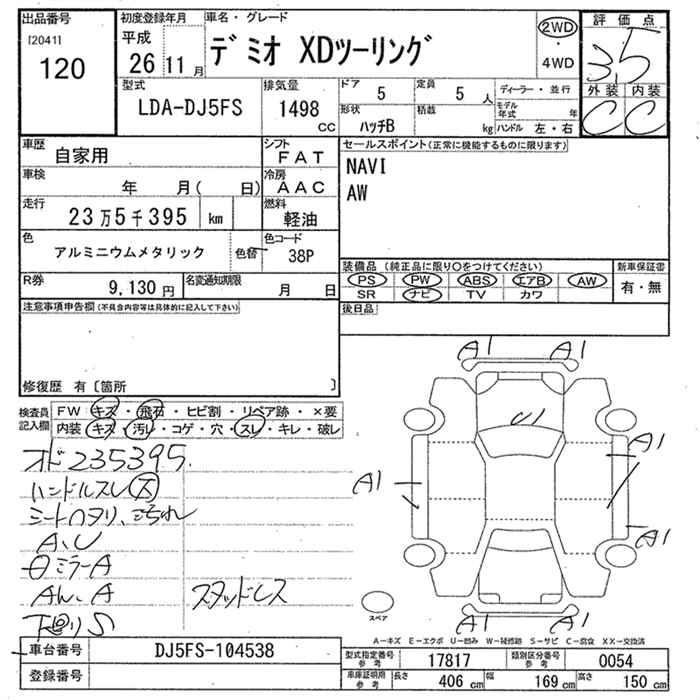 出品番号 初度登録年月 車名・グレード 2WD 評価点
[2041] 平成 デミオ XDツーリング 3.5
120 26 11 月 4WD
型式 排気量 ドア 5 定員 5 人 ディーラー・並行 外装 内装
LDA-DJ5FS 1498 cc 形状 ハッチB 積載 kg モデル年式 年 C C
ハンドル 左・右
車歴 自家用 シフト FAT セールスポイント(正常に機能するものに限ります)
車検 年 月( 日) 冷房 AAC NAVI
走行 23万5千395 km 燃料 軽油 AW
色 アルミニウムメタリック 色替 色コード 38P
装備品(純正品に限り○をつけてください) 新車保証書
R券 9,130 円 名変通知期限 月 日 PS PW ABS エアB AW 有・無
SR ナビ TV カワ
注意事項申告欄(不具合内容等は具体的に記入して下さい) 後日品
修復歴 有〔箇所 〕
A1 A1
検査員記入欄 FW キズ・飛石・ヒビ割・リペア跡・×要
内装 キズ・汚レ・コゲ・穴・スレ・キレ・破レ
U1
オド235395.
A1 A1
ハンドルスレ大
シートヘタリ、汚れ
A、U A1
ミラーA
A、A スタッドレス
下廻りS スペア
A1 A1
A-キズ E-エクボ U-凹み W-補修跡 S-サビ C-腐食 XX-交換済
車台番号 DJ5FS-104538 型式指定番号 参考 17817 類別区分番号 参考 0054
登録番号 車庫証明用 参考 長さ 406 cm 幅 169 cm 高さ 150 cm